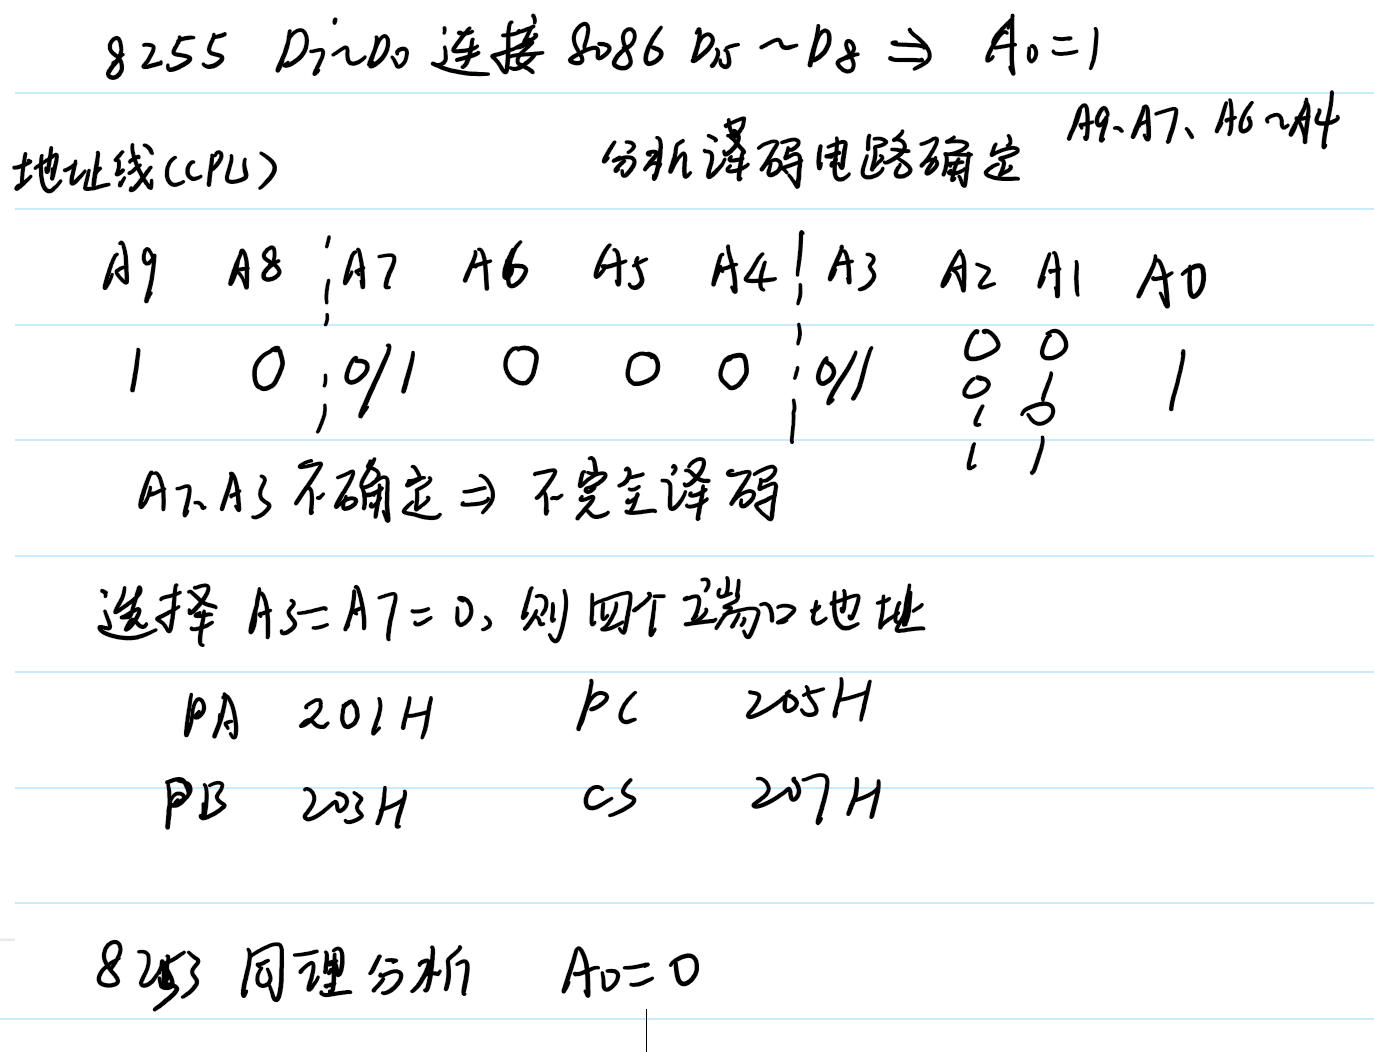 8255 D7~D0 连接 8086 D15~D8 ⇒ A0=1
A9、A7、A6~A4
地址线(CPU) 分析译码电路确定
A9 A8 A7 A6 A5 A4 A3 A2 A1 A0
1 0 0/1 0 0 0 0/1 0 0 1
0 1
1 0
1 1
A7、A3 不确定 ⇒ 不完全译码
选择 A3=A7=0, 则四个端口地址
PA 201H PC 205H
PB 203H CS 207H
8253 同理分析 A0=0